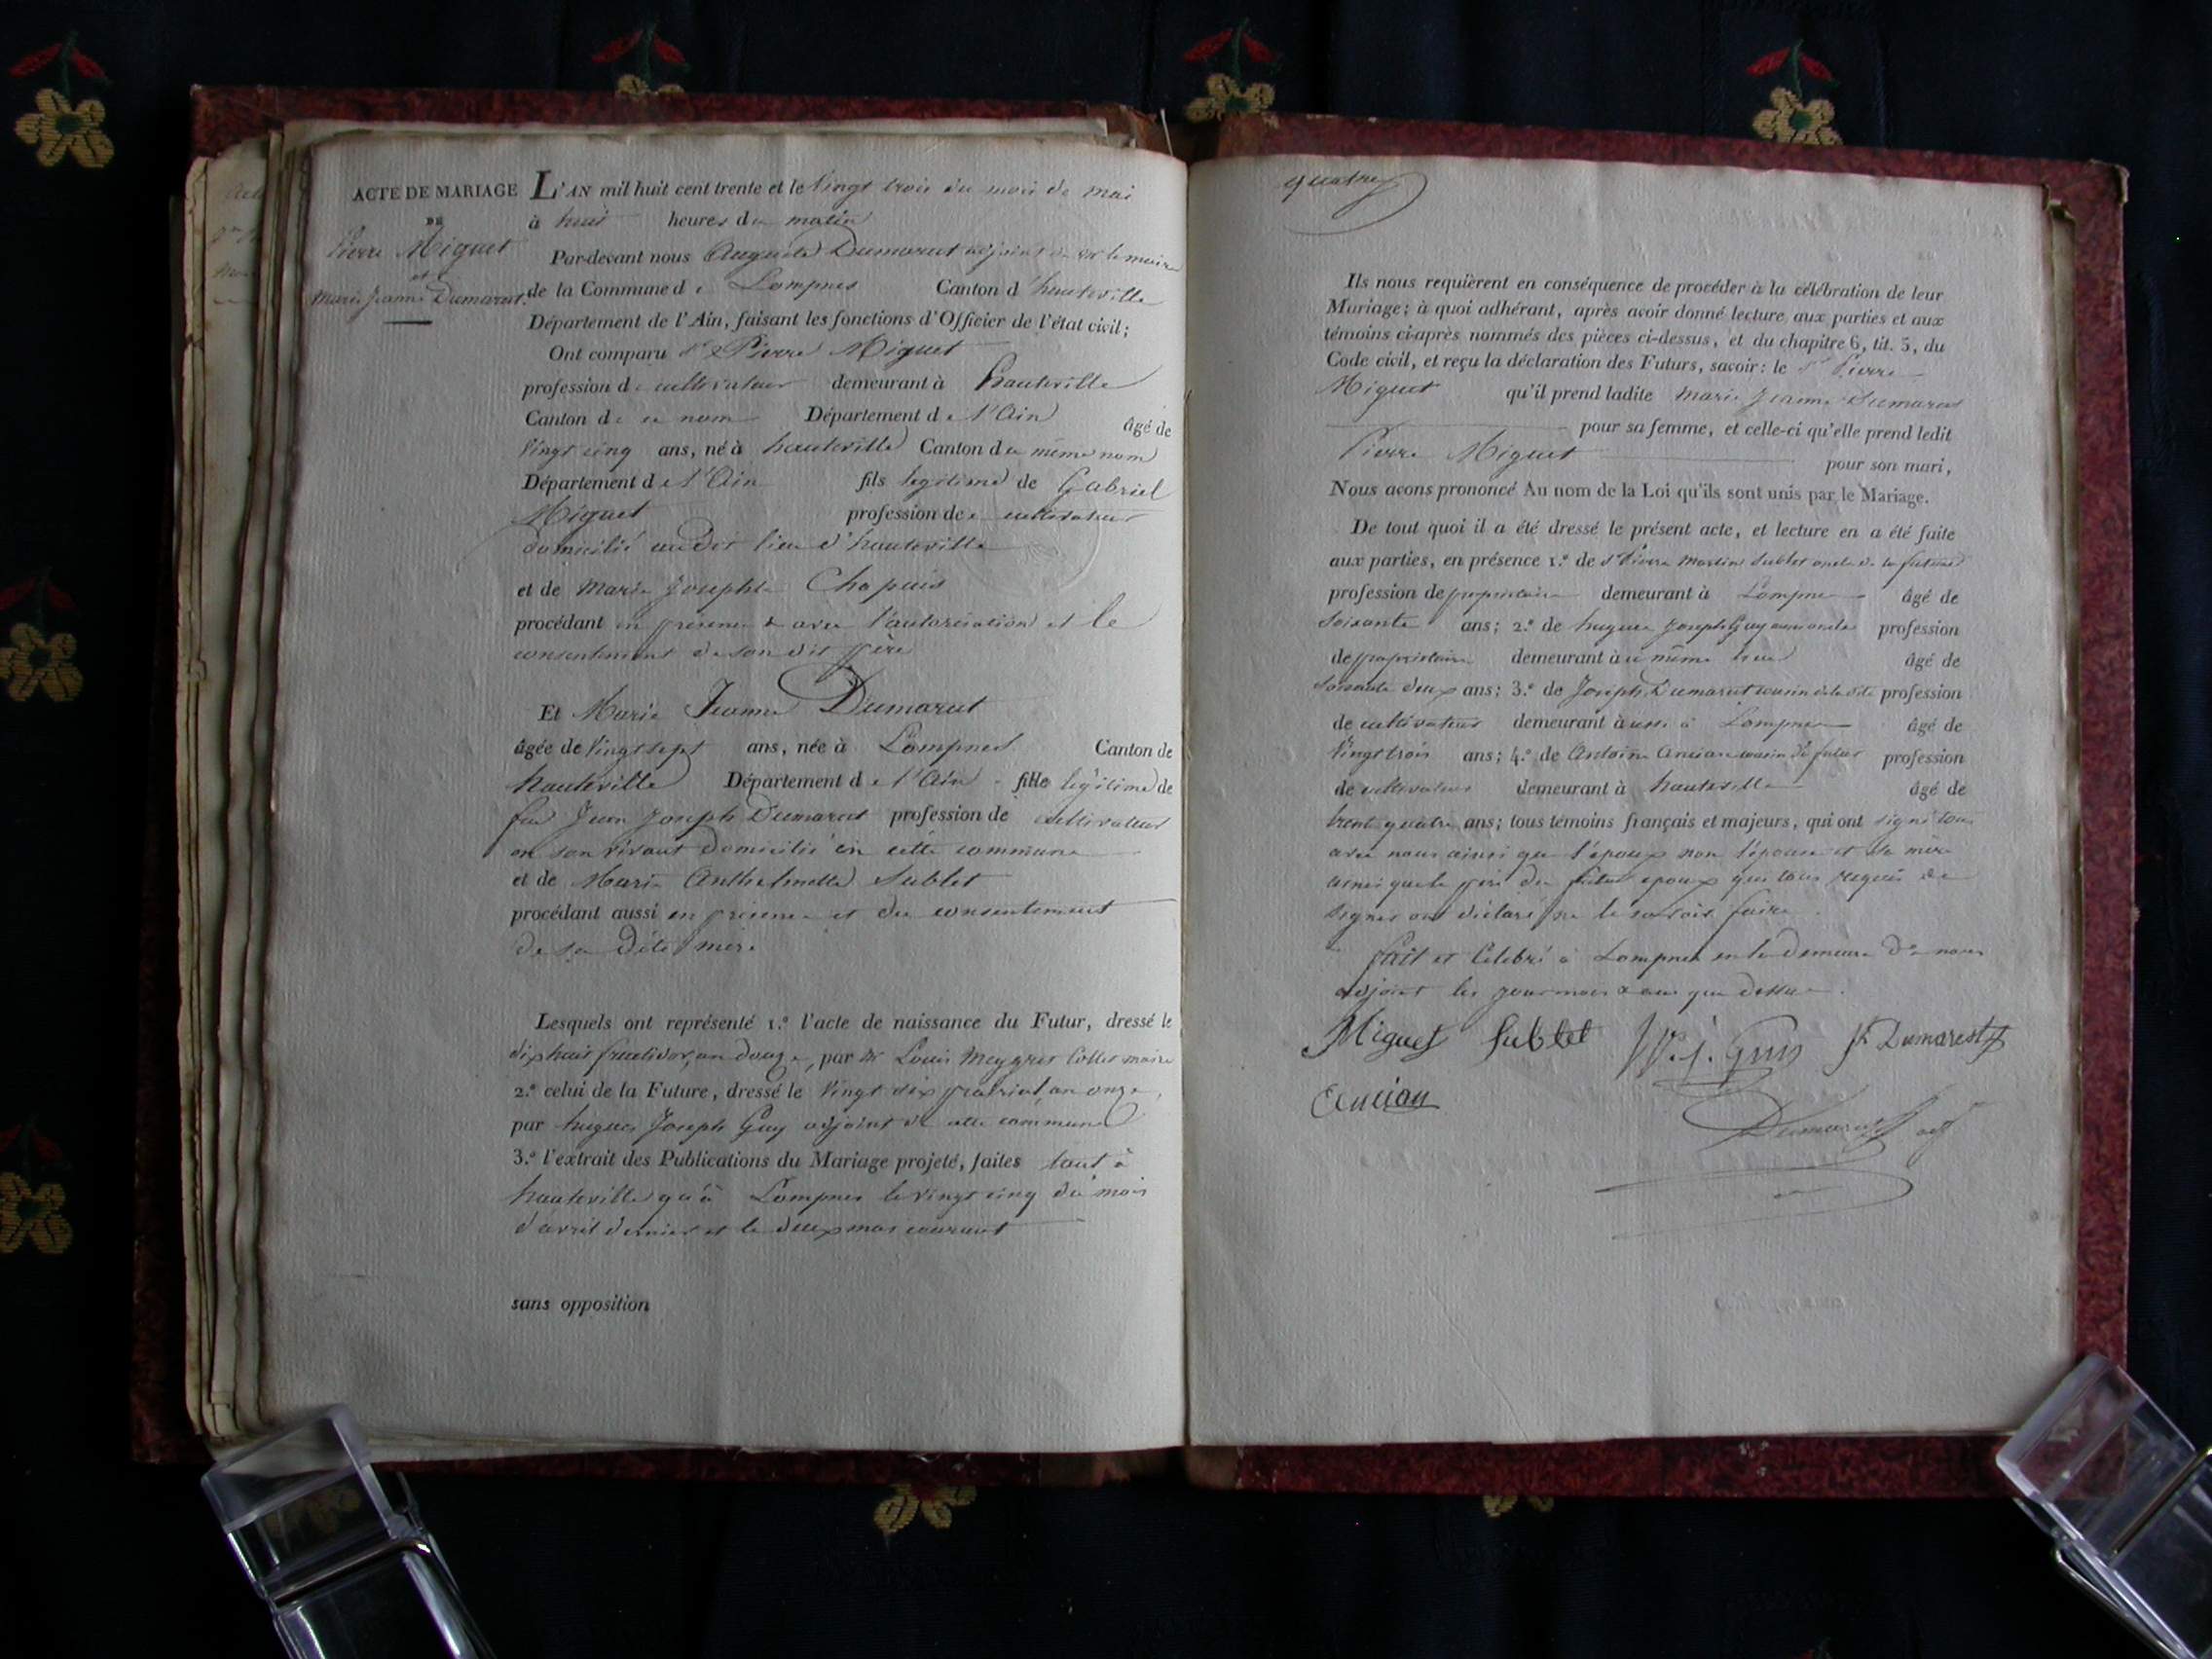 ACTE DE MARIAGE
DE
Pierre Miguet
et
Marie Jeanne Dumarest.
L'AN mil huit cent trente et le Vingt trois du mois de mai
à huit heures du matin
Par-devant nous Auguste Dumarest adjoint de Mr le maire
de la Commune de Lompnes Canton d'hauteville
Département de l'Ain, faisant les fonctions d'Officier de l'état civil;
Ont comparu Sr Pierre Miguet
profession de cultivateur demeurant à hauteville
Canton de ce nom Département de l'Ain âgé de
Vingt cinq ans, né à hauteville Canton du même nom
Département de l'Ain fils légitime de Gabriel
Miguet profession de cultivateur
domicilié audit lieu d'hauteville
et de Marie Josephte Chapuis
procédant en présence & avec l'autorisation et le
consentement de son dit père
Et Marie Jeanne Dumarest
âgée de Vingt sept ans, née à Lompnes Canton de
hauteville Département de l'Ain fille légitime de
feu Jean Joseph Dumarest profession de cultivateur
en son vivant domicilié en cette commune
et de Marie Anthelmette Sublet
procédant aussi en présence et du consentement
de sa dite mère
Lesquels ont représenté 1.º l'acte de naissance du Futur, dressé le
dix huit fructidor, an douze, par Mr Louis Meygret Collet maire
2.º celui de la Future, dressé le Vingt six prairial, an onze,
par hugues Joseph Guy adjoint de cette commune
3.º l'extrait des Publications du Mariage projeté, faites tant à
hauteville qu'à Lompnes le vingt cinq du mois
d'avril dernier et le deux mai courant
sans opposition
quatre
Ils nous requièrent en conséquence de procéder à la célébration de leur
Mariage; à quoi adhérant, après avoir donné lecture aux parties et aux
témoins ci-après nommés des pièces ci-dessus, et du chapitre 6, tit. 5, du
Code civil, et reçu la déclaration des Futurs, savoir: le Sr Pierre
Miguet qu'il prend ladite marie Jeanne Dumarest
pour sa femme, et celle-ci qu'elle prend ledit
Pierre Miguet pour son mari,
Nous avons prononcé Au nom de la Loi qu'ils sont unis par le Mariage.
De tout quoi il a été dressé le présent acte, et lecture en a été faite
aux parties, en présence 1.º de Sr Pierre Martin Sublet oncle de la future
profession de propriétaire demeurant à Lompnes âgé de
Soixante ans; 2.º de hugues Joseph Guy profession
de propriétaire demeurant à ce même lieu âgé de
Soixante deux ans; 3.º de Joseph Dumarest cousin de la dite profession
de cultivateur demeurant aussi à Lompnes âgé de
Vingt trois ans; 4.º de Antoine Ancian cousin du futur profession
de cultivateur demeurant à hauteville âgé de
trente quatre ans; tous témoins français et majeurs, qui ont signé tous
avec nous ainsi que l'époux non l'épouse et sa mère
ainsi que le père du futur époux qui tous requis de
signer ont déclaré ne le savoir faire.
fait et Célébré à Lompnes en la demeure de nous
adjoint les jour mois & an que dessus.
Miguet Sublet h. j. Guy Jh Dumarest
Ancian
Dumarest adj